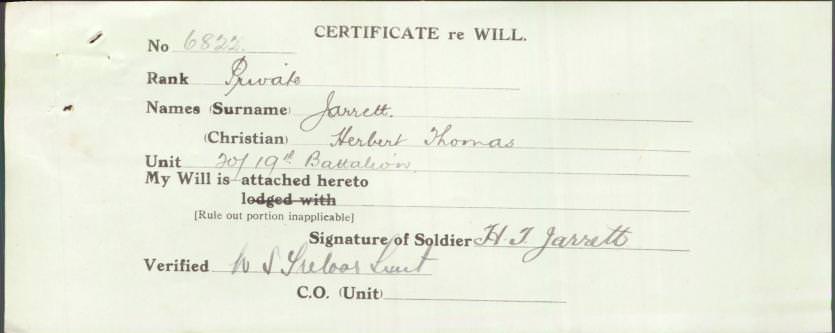 CERTIFICATE re WILL.
No 6822.
Rank Private
Names (Surname) Jarrett.
(Christian) Herbert Thomas
Unit 20/19th Battalion
My Will is attached hereto
lodged with
[Rule out portion inapplicable]
Signature of Soldier H. T. Jarrett
Verified W S Treloar Lieut
C.O. (Unit)